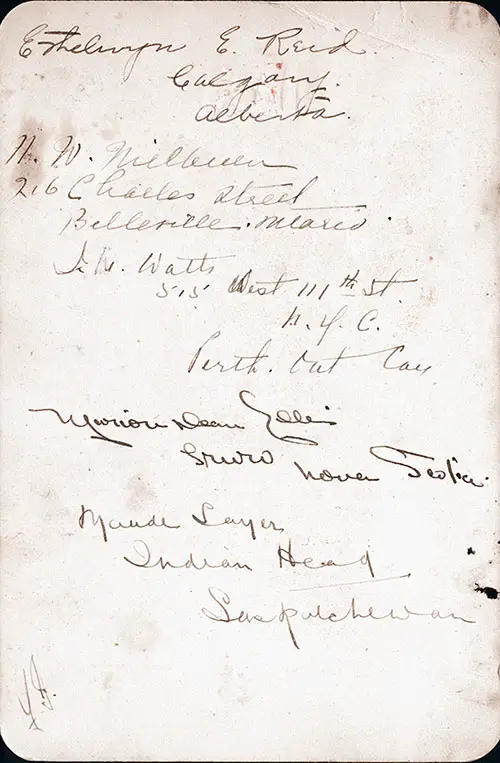 Ethelwyn E. Reid.
Calgary.
Alberta.
216 Charles Street
Belleville. Ontario.
Watts
515 West 111th St.
N. Y. C.
Perth. Ont Can
Marion Dean Ellis
Truro Nova Scotia.
Maude Sayer
Indian Head
Saskatchewan